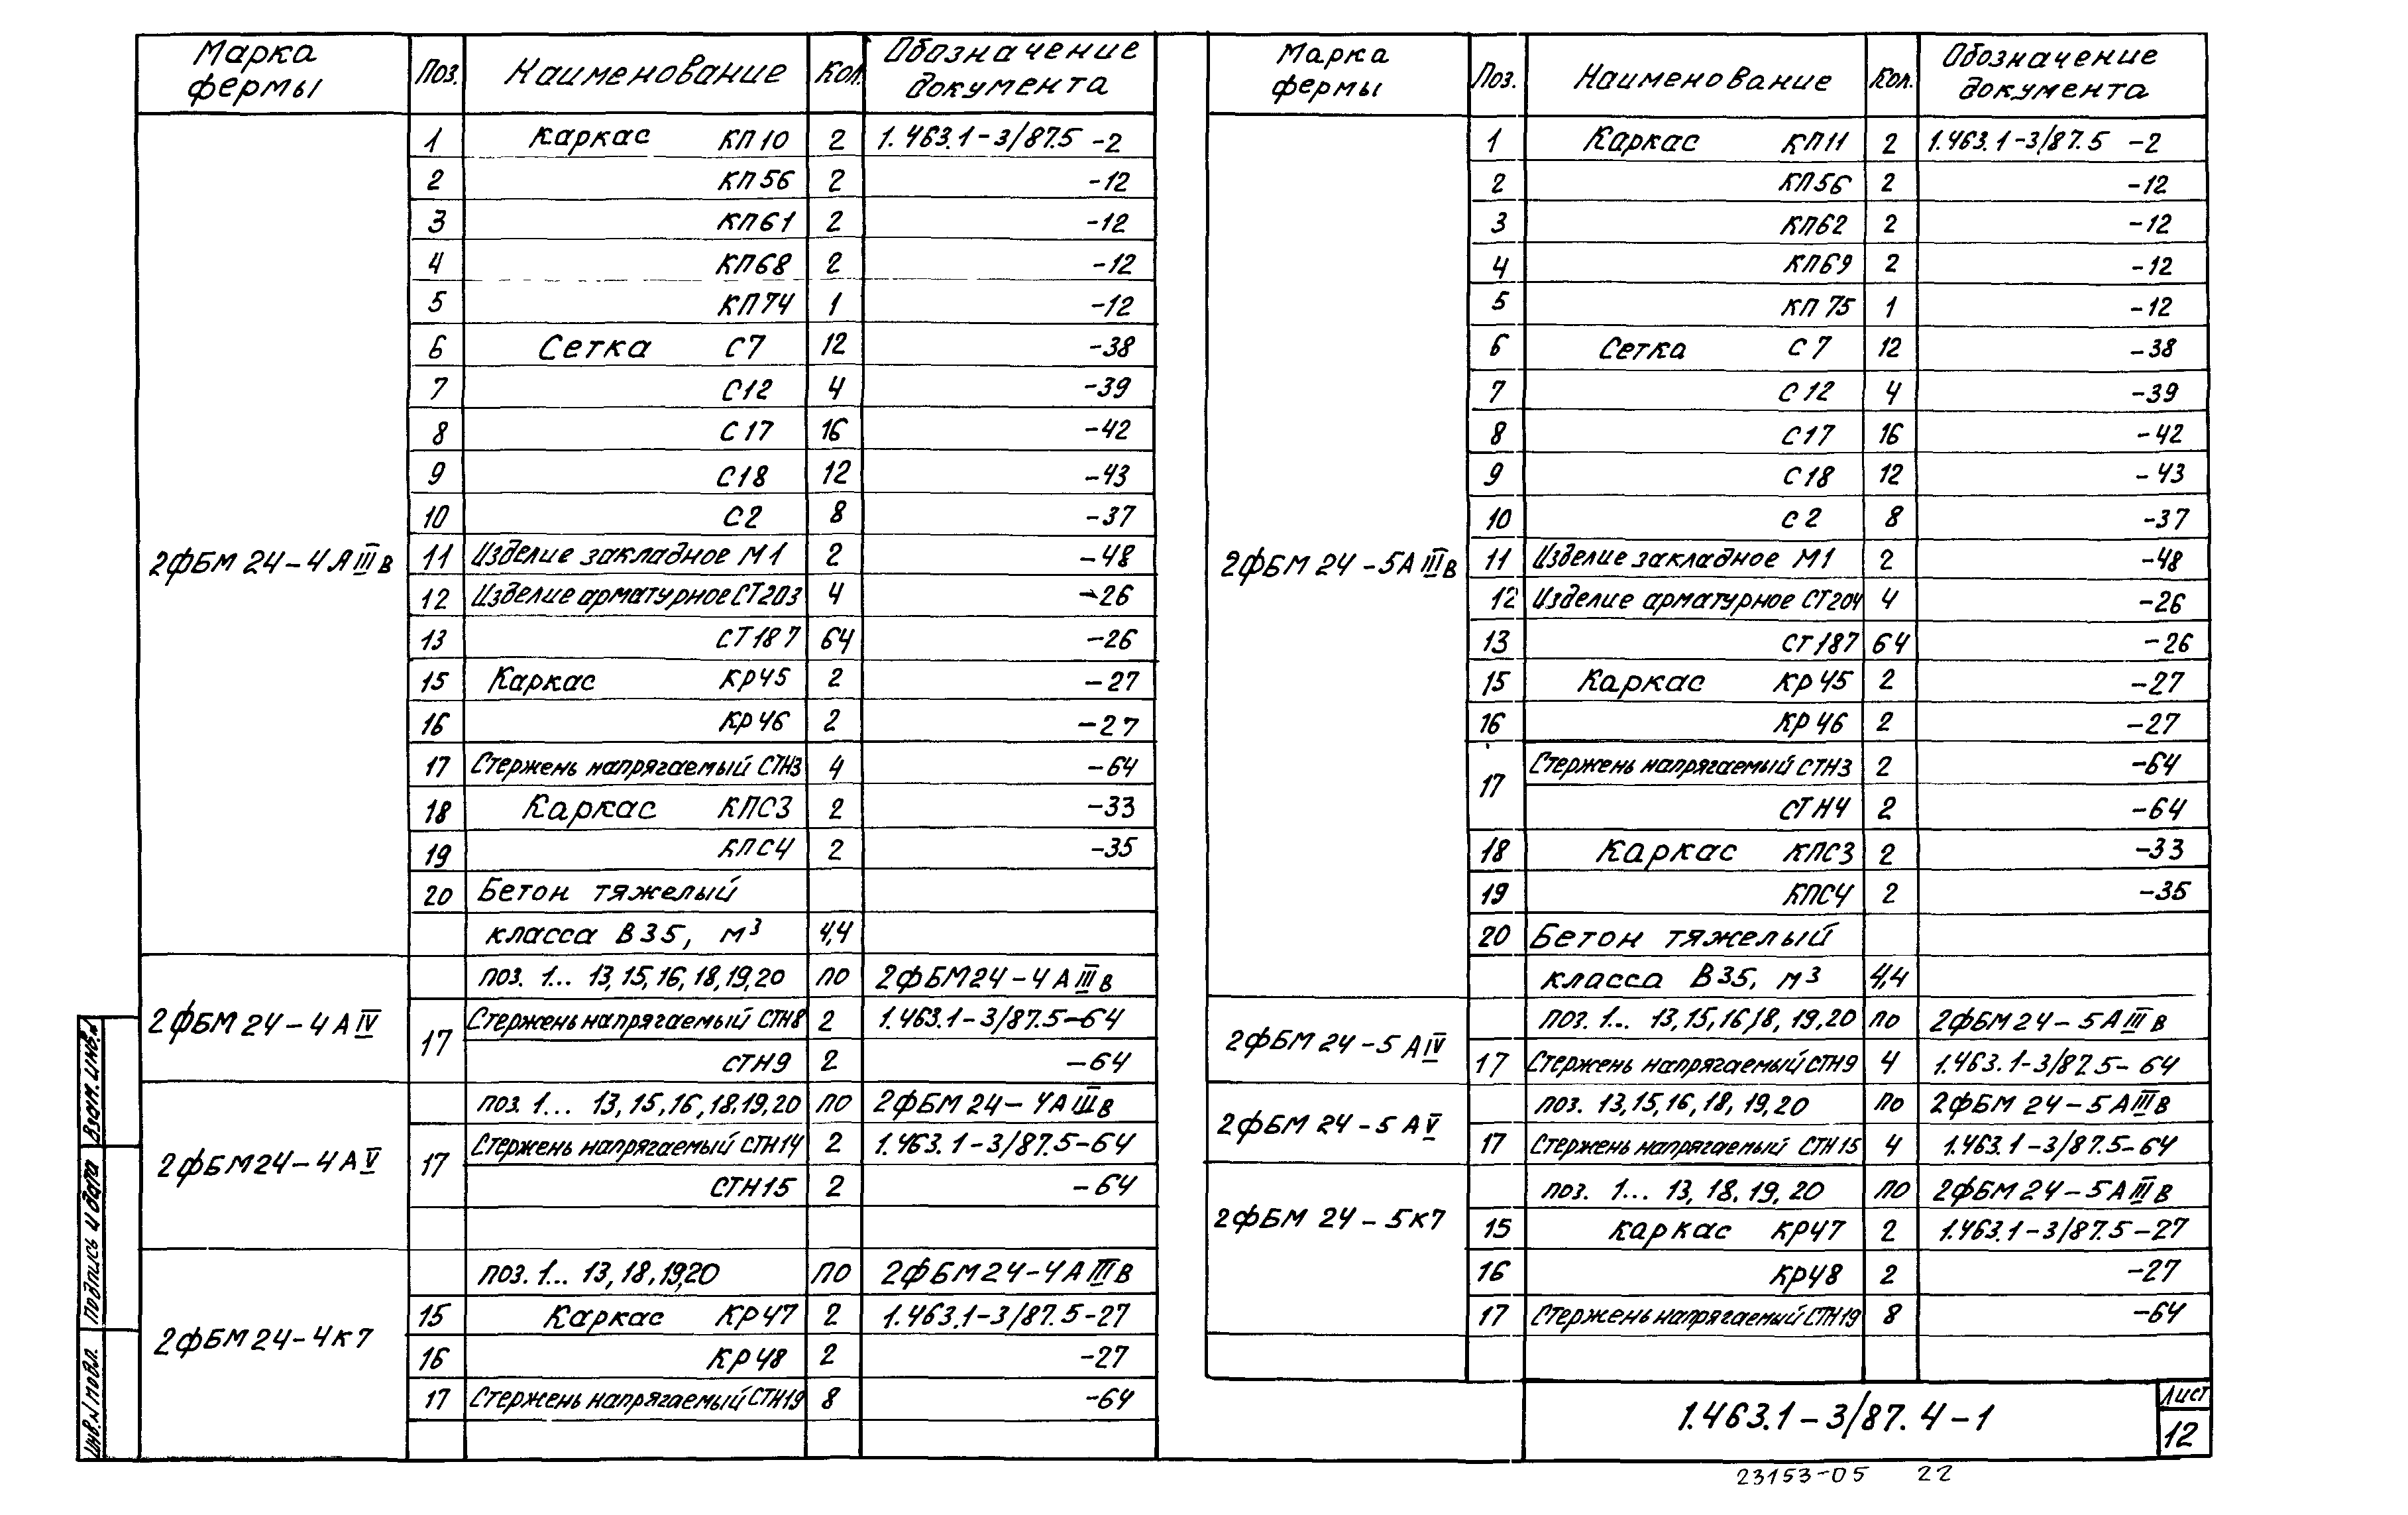 Марка фермы Поз. Наименование Кол. Обозначение документа
1 Каркас КП10 2 1.463.1-3/87.5 -2
2 КП56 2 -12
3 КП61 2 -12
4 КП68 2 -12
5 КП74 1 -12
6 Сетка С7 12 -38
7 С12 4 -39
8 С17 16 -42
9 С18 12 -43
10 С2 8 -37
2ФБМ 24-4АIIIв 11 Изделие закладное М1 2 -48
12 Изделие арматурное СТ203 4 -26
13 СТ187 64 -26
15 Каркас КР45 2 -27
16 КР46 2 -27
17 Стержень напрягаемый СТН3 4 -64
18 Каркас КПС3 2 -33
19 КПС4 2 -35
20 Бетон тяжелый
класса В35, м³ 4,4
поз. 1... 13, 15, 16, 18, 19, 20 по 2ФБМ24-4АIIIв
2ФБМ 24-4АIV 17 Стержень напрягаемый СТН8 2 1.463.1-3/87.5-64
СТН9 2 -64
поз. 1... 13, 15, 16, 18, 19, 20 по 2ФБМ 24-4АIIIв
2ФБМ24-4АV 17 Стержень напрягаемый СТН14 2 1.463.1-3/87.5-64
СТН15 2 -64
поз. 1... 13, 18, 19, 20 по 2ФБМ24-4АIIIв
15 Каркас КР47 2 1.463.1-3/87.5-27
2ФБМ24-4К7 16 КР48 2 -27
17 Стержень напрягаемый СТН19 8 -64
Марка фермы Поз. Наименование Кол. Обозначение документа
1 Каркас КП11 2 1.463.1-3/87.5 -2
2 КП56 2 -12
3 КП62 2 -12
4 КП69 2 -12
5 КП75 1 -12
6 Сетка С7 12 -38
7 С12 4 -39
8 С17 16 -42
9 С18 12 -43
10 С2 8 -37
2ФБМ 24-5АIIIв 11 Изделие закладное М1 2 -48
12 Изделие арматурное СТ204 4 -26
13 СТ187 64 -26
15 Каркас КР45 2 -27
16 КР46 2 -27
17 Стержень напрягаемый СТН3 2 -64
СТН4 2 -64
18 Каркас КПС3 2 -33
19 КПС4 2 -35
20 Бетон тяжелый
класса В35, м³ 4,4
поз. 1... 13, 15, 16, 18, 19, 20 по 2ФБМ24-5АIIIв
2ФБМ 24-5АIV 17 Стержень напрягаемый СТН9 4 1.463.1-3/87.5-64
поз. 13, 15, 16, 18, 19, 20 по 2ФБМ 24-5АIIIв
2ФБМ 24-5АV 17 Стержень напрягаемый СТН15 4 1.463.1-3/87.5-64
поз. 1... 13, 18, 19, 20 по 2ФБМ24-5АIIIв
2ФБМ 24-5К7 15 Каркас КР47 2 1.463.1-3/87.5-27
16 КР48 2 -27
17 Стержень напрягаемый СТН19 8 -64
1.463.1-3/87.4-1
Лист
12
23153-05 22
Взам. инв.№
Подпись и дата
Инв.№ подл.